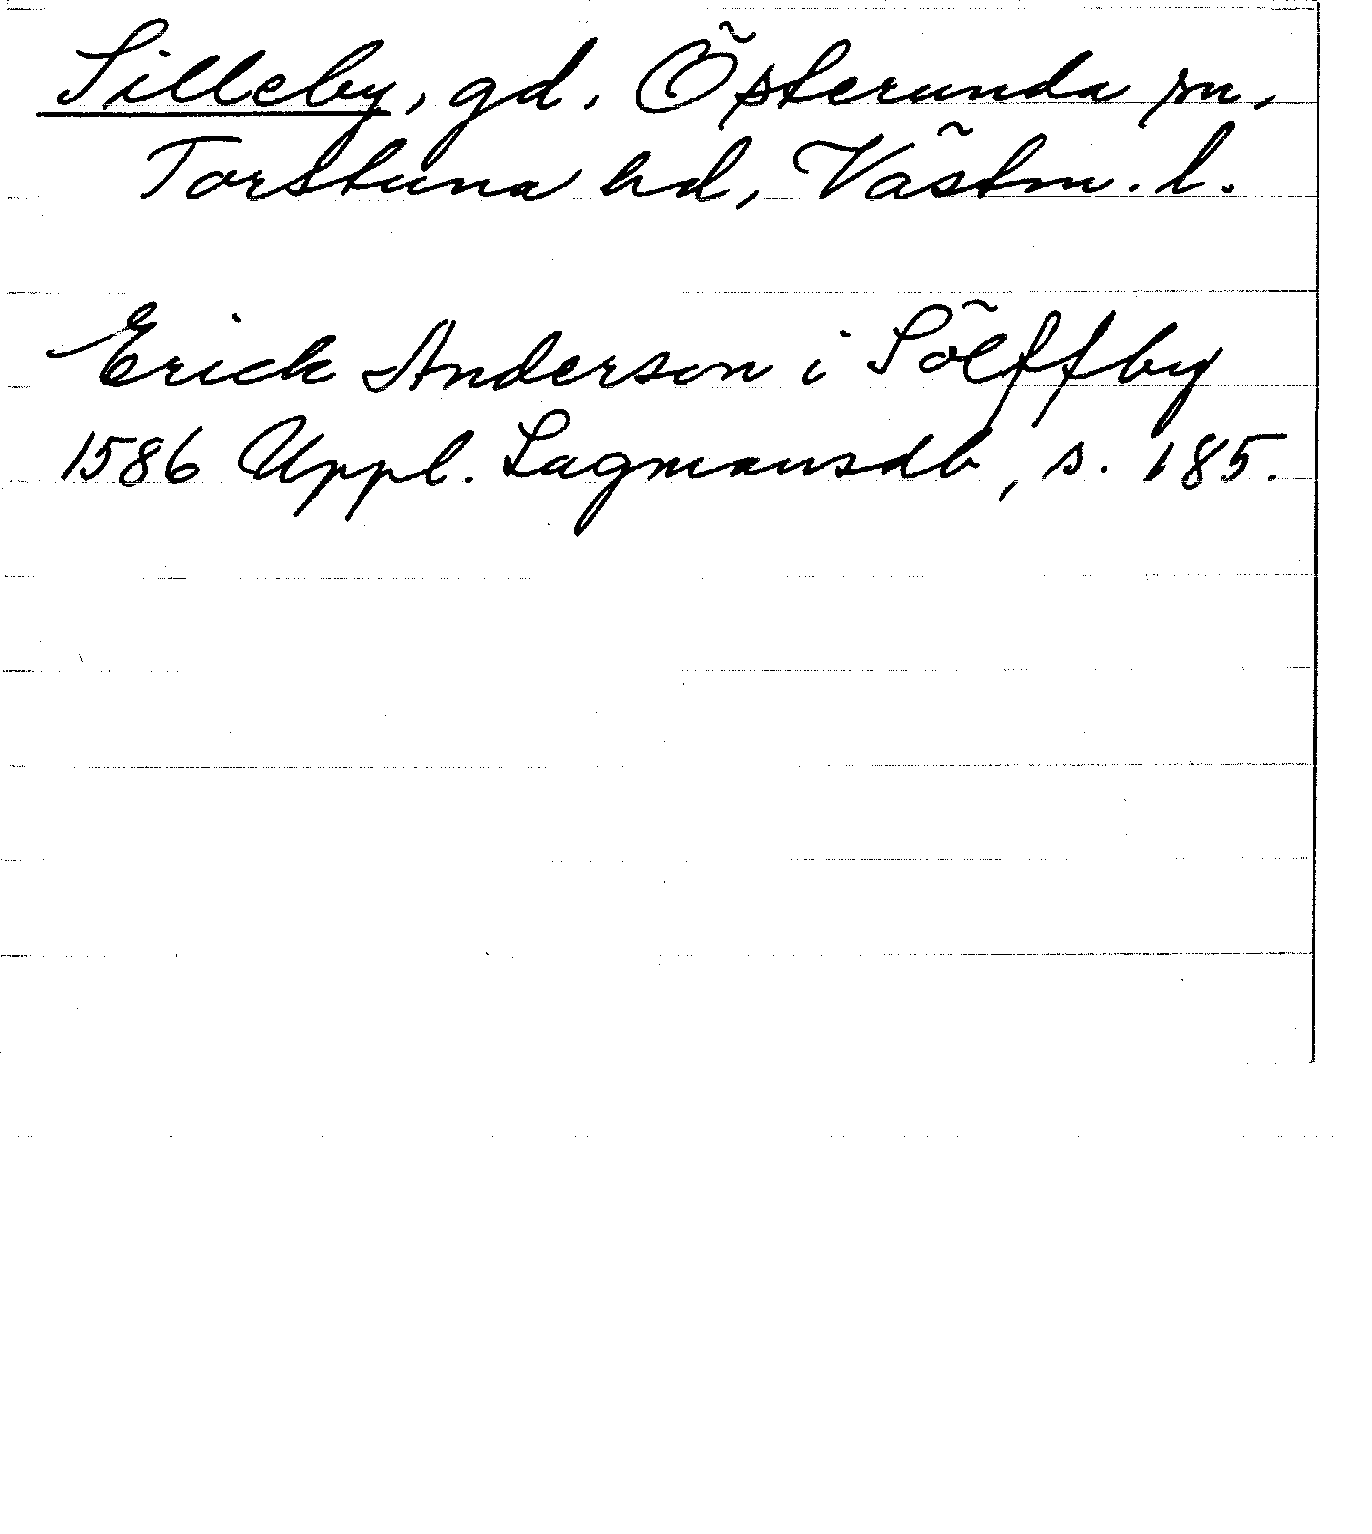 Silleby, gd, Österunda sn,
Torstuna hd, Västm. l.
Erick Anderson i Sölffby
1586 Uppl. Lagmansdb, s. 185.